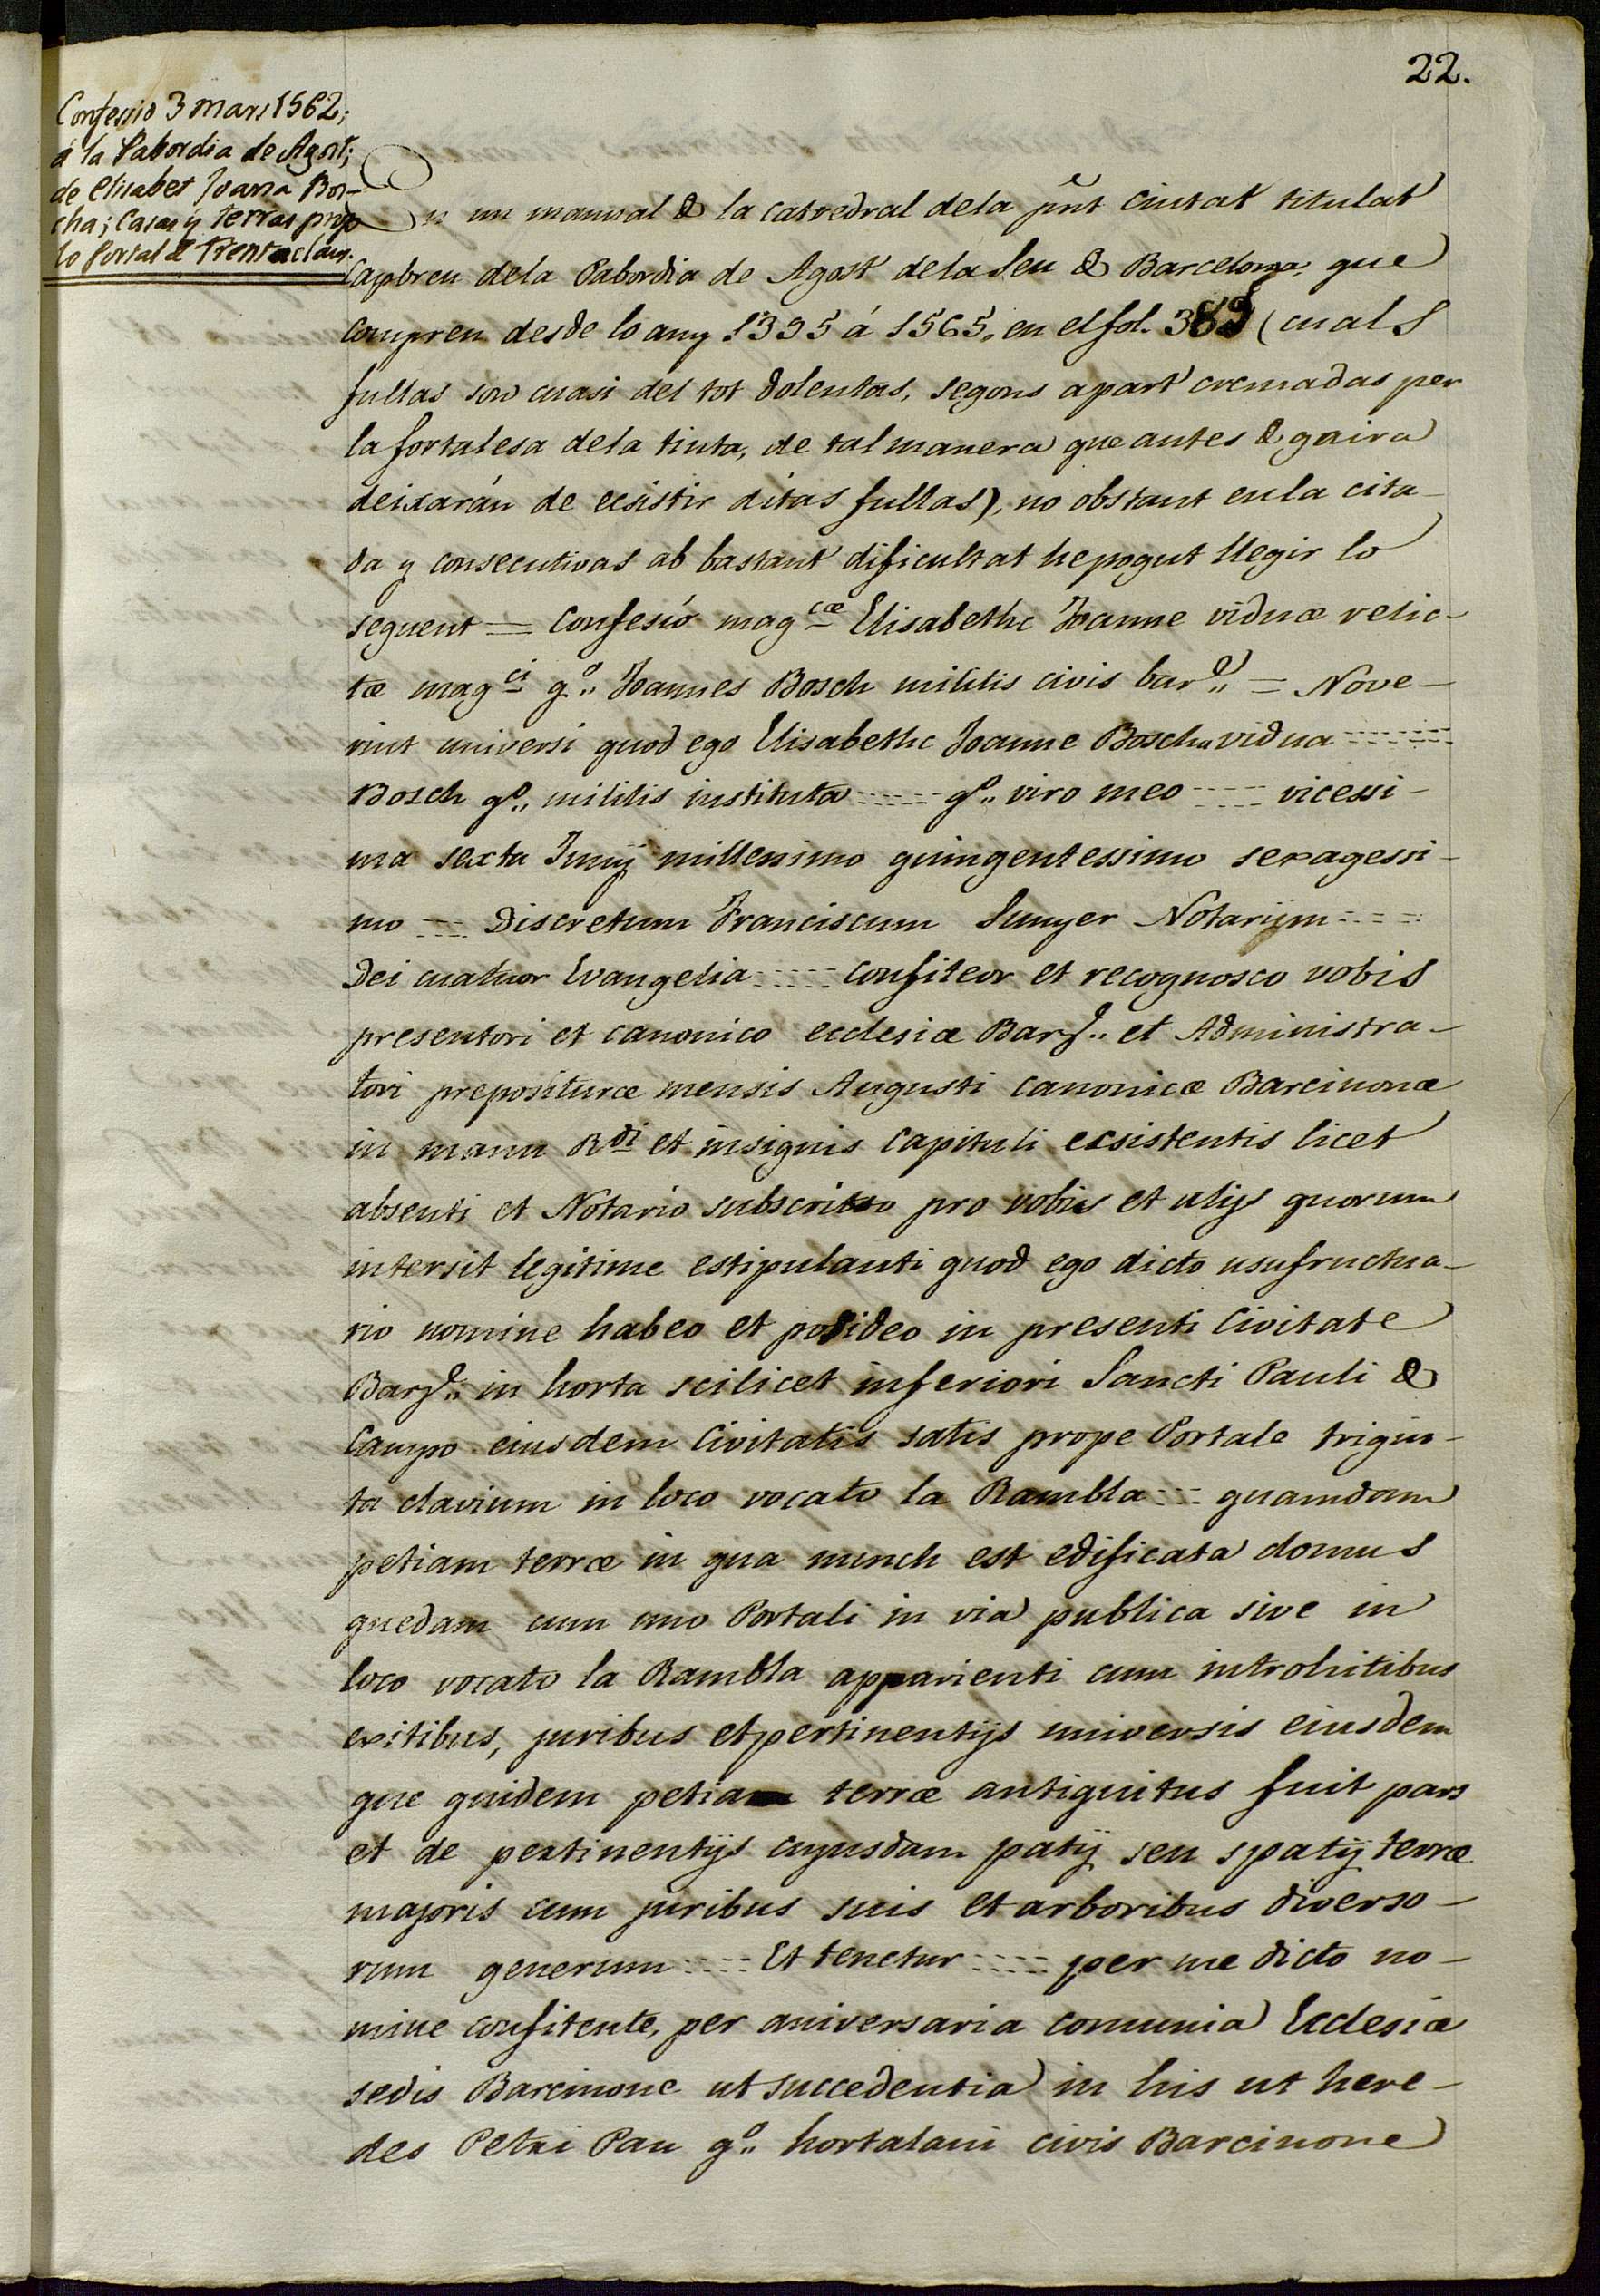 22.
Confessió 3 mars 1562;
á la Pabordia de Agost;
de Elisabet Joana Bos-
cha; casas y terras prop
lo Portal de Trentaclaus.
En un manual de la catredral de la pnt Ciutat titulat
Capbreu de la Pabordia de Agost de la Seu de Barcelona, que
compren desde lo any 1395 á 1565, en el fol. 389 (cuals
fullas son cuasi del tot dolentas, segons apart cremadas per
la fortalesa de la tinta, de tal manera que antes de gaira
deixarán de ecsistir ditas fullas), no obstant en la cita-
da y consecutivas ab bastant dificultat he pogut llegir lo
seguent = Confesió magcæ Elisabethe Joanne viduæ relic-
tæ magci qo.. Joannes Bosch militis civis barq.. = Nove-
rint universi quod ego Elisabethe Joanne Boscha vidua ------
Bosch qo.. militis instituta ----- qo.. viro meo ---- vicessi-
ma sexta Junij millessimo quingentessimo sexagessi-
mo --- Discretum Franciscum Sunyer Notarijm ----
Dei cuatuor Evangelia ----- confiteor et recognosco vobis
presentori et canonico ecclesiæ Barq.. et Administra-
tori preposituræ mensis Augusti canonicæ Barcinonæ
in manu Rdi et insignis Capituli ecsistentis licet
absenti et Notario subscritto pro vobis et alijs quorum
intersit legitime estipulanti quod ego dicto usufructua-
rio nomine habeo et posideo in presenti Civitate
Barq.. in horta scilicet inferiori Sancti Pauli de
Campo eiusdem Civitatis satis prope Portale trigin-
ta clavium in loco vocato la Rambla --- quamdam
petiam terræ in qua nunch est edificata domus
quedam cum uno Portali in via publica sive in
loco vocato la Rambla apparienti cum introhitibus
exitibus, juribus et pertinentijs universis eiusdem
que quidem petia terræ antiquitus fuit pars
et de pertinentijs cujusdam patij seu spatij terræ
majoris cum juribus suis et arboribus diverso-
rum generum ---- Et tenetur ---- per me dicto no-
mine confitente, per aniversaria comunia Ecclesiæ
sedis Barcinone ut succedentia in his ut here-
des Petri Pau qo.. hortalani civis Barcinone